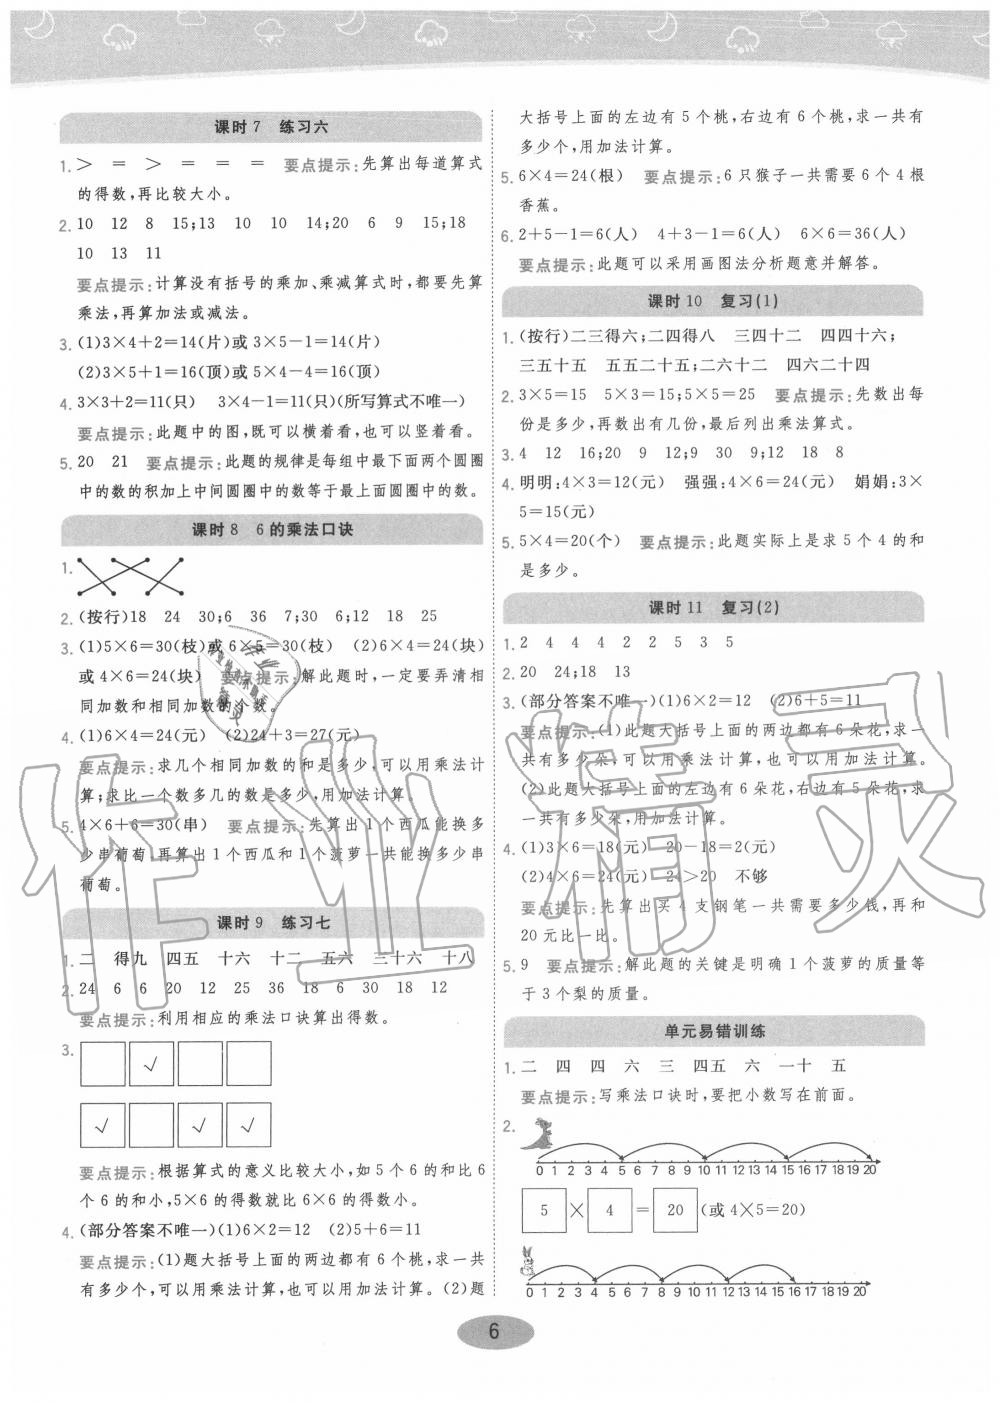 课时7 练习六
1. ＞ ＝ ＞ ＝ ＝ ＝ 要点提示:先算出每道算式
的得数,再比较大小。
2. 10 12 8 15;13 10 10 14;20 6 9 15;18
10 13 11
要点提示:计算没有括号的乘加、乘减算式时,都要先算
乘法,再算加法或减法。
3. (1)3×4＋2＝14(片)或3×5－1＝14(片)
(2)3×5＋1＝16(顶)或5×4－4＝16(顶)
4. 3×3＋2＝11(只) 3×4－1＝11(只)(所写算式不唯一)
要点提示:此题中的图,既可以横着看,也可以竖着看。
5. 20 21 要点提示:此题的规律是每组中最下面两个圆圈
中的数的积加上中间圆圈中的数等于最上面圆圈中的数。
课时8 6的乘法口诀
1.
2. (按行)18 24 30;6 36 7;30 6;12 18 25
3. (1)5×6＝30(枝)或6×5＝30(枝) (2)6×4＝24(块)
或4×6＝24(块) 要点提示:解此题时,一定要弄清相
同加数和相同加数的个数。
4. (1)6×4＝24(元) (2)24＋3＝27(元)
要点提示:求几个相同加数的和是多少,可以用乘法计
算;求比一个数多几的数是多少,用加法计算。
5. 4×6＋6＝30(串) 要点提示:先算出1个西瓜能换多
少串葡萄,再算出1个西瓜和1个菠萝一共能换多少串
葡萄。
课时9 练习七
1. 二 得九 四五 十六 十二 五六 三十六 十八
2. 24 6 6 20 12 25 36 18 6 30 18 12
要点提示:利用相应的乘法口诀算出得数。
3. ✓
✓ ✓ ✓
要点提示:根据算式的意义比较大小,如5个6的和比6
个6的和小,5×6的得数就比6×6的得数小。
4. (部分答案不唯一)(1)6×2＝12 (2)5＋6＝11
要点提示:(1)题大括号上面的两边都有6个桃,求一共
有多少个,可以用乘法计算,也可以用加法计算。(2)题
大括号上面的左边有5个桃,右边有6个桃,求一共有
多少个,用加法计算。
5. 6×4＝24(根) 要点提示:6只猴子一共需要6个4根
香蕉。
6. 2＋5－1＝6(人) 4＋3－1＝6(人) 6×6＝36(人)
要点提示:此题可以采用画图法分析题意并解答。
课时10 复习(1)
1. (按行)二三得六;二四得八 三四十二 四四十六;
三五十五 五五二十五;二六十二 四六二十四
2. 3×5＝15 5×3＝15;5×5＝25 要点提示:先数出每
份是多少,再数出有几份,最后列出乘法算式。
3. 4 12 16;20 9 12;9 30 9;12 18 8
4. 明明:4×3＝12(元) 强强:4×6＝24(元) 娟娟:3×
5＝15(元)
5. 5×4＝20(个) 要点提示:此题实际上是求5个4的和
是多少。
课时11 复习(2)
1. 2 4 4 4 2 2 5 3 5
2. 20 24;18 13
3. (部分答案不唯一)(1)6×2＝12 (2)6＋5＝11
要点提示:(1)此题大括号上面的两边都有6朵花,求一
共有多少朵,可以用乘法计算,也可以用加法计算。
(2)此题大括号上面的左边有6朵花,右边有5朵花,求
一共有多少朵,用加法计算。
4. (1)3×6＝18(元) 20－18＝2(元)
(2)4×6＝24(元) 24＞20 不够
要点提示:先算出买4支钢笔一共需要多少钱,再和
20元比一比。
5. 9 要点提示:解此题的关键是明确1个菠萝的质量等
于3个梨的质量。
单元易错训练
1. 二 四 四 六 三 四五 六 一十 五
要点提示:写乘法口诀时,要把小数写在前面。
2.
0 1 2 3 4 5 6 7 8 9 10 11 12 13 14 15 16 17 18 19 20
5 × 4 ＝ 20 (或4×5＝20)
0 1 2 3 4 5 6 7 8 9 10 11 12 13 14 15 16 17 18 19 20
6
作业精灵